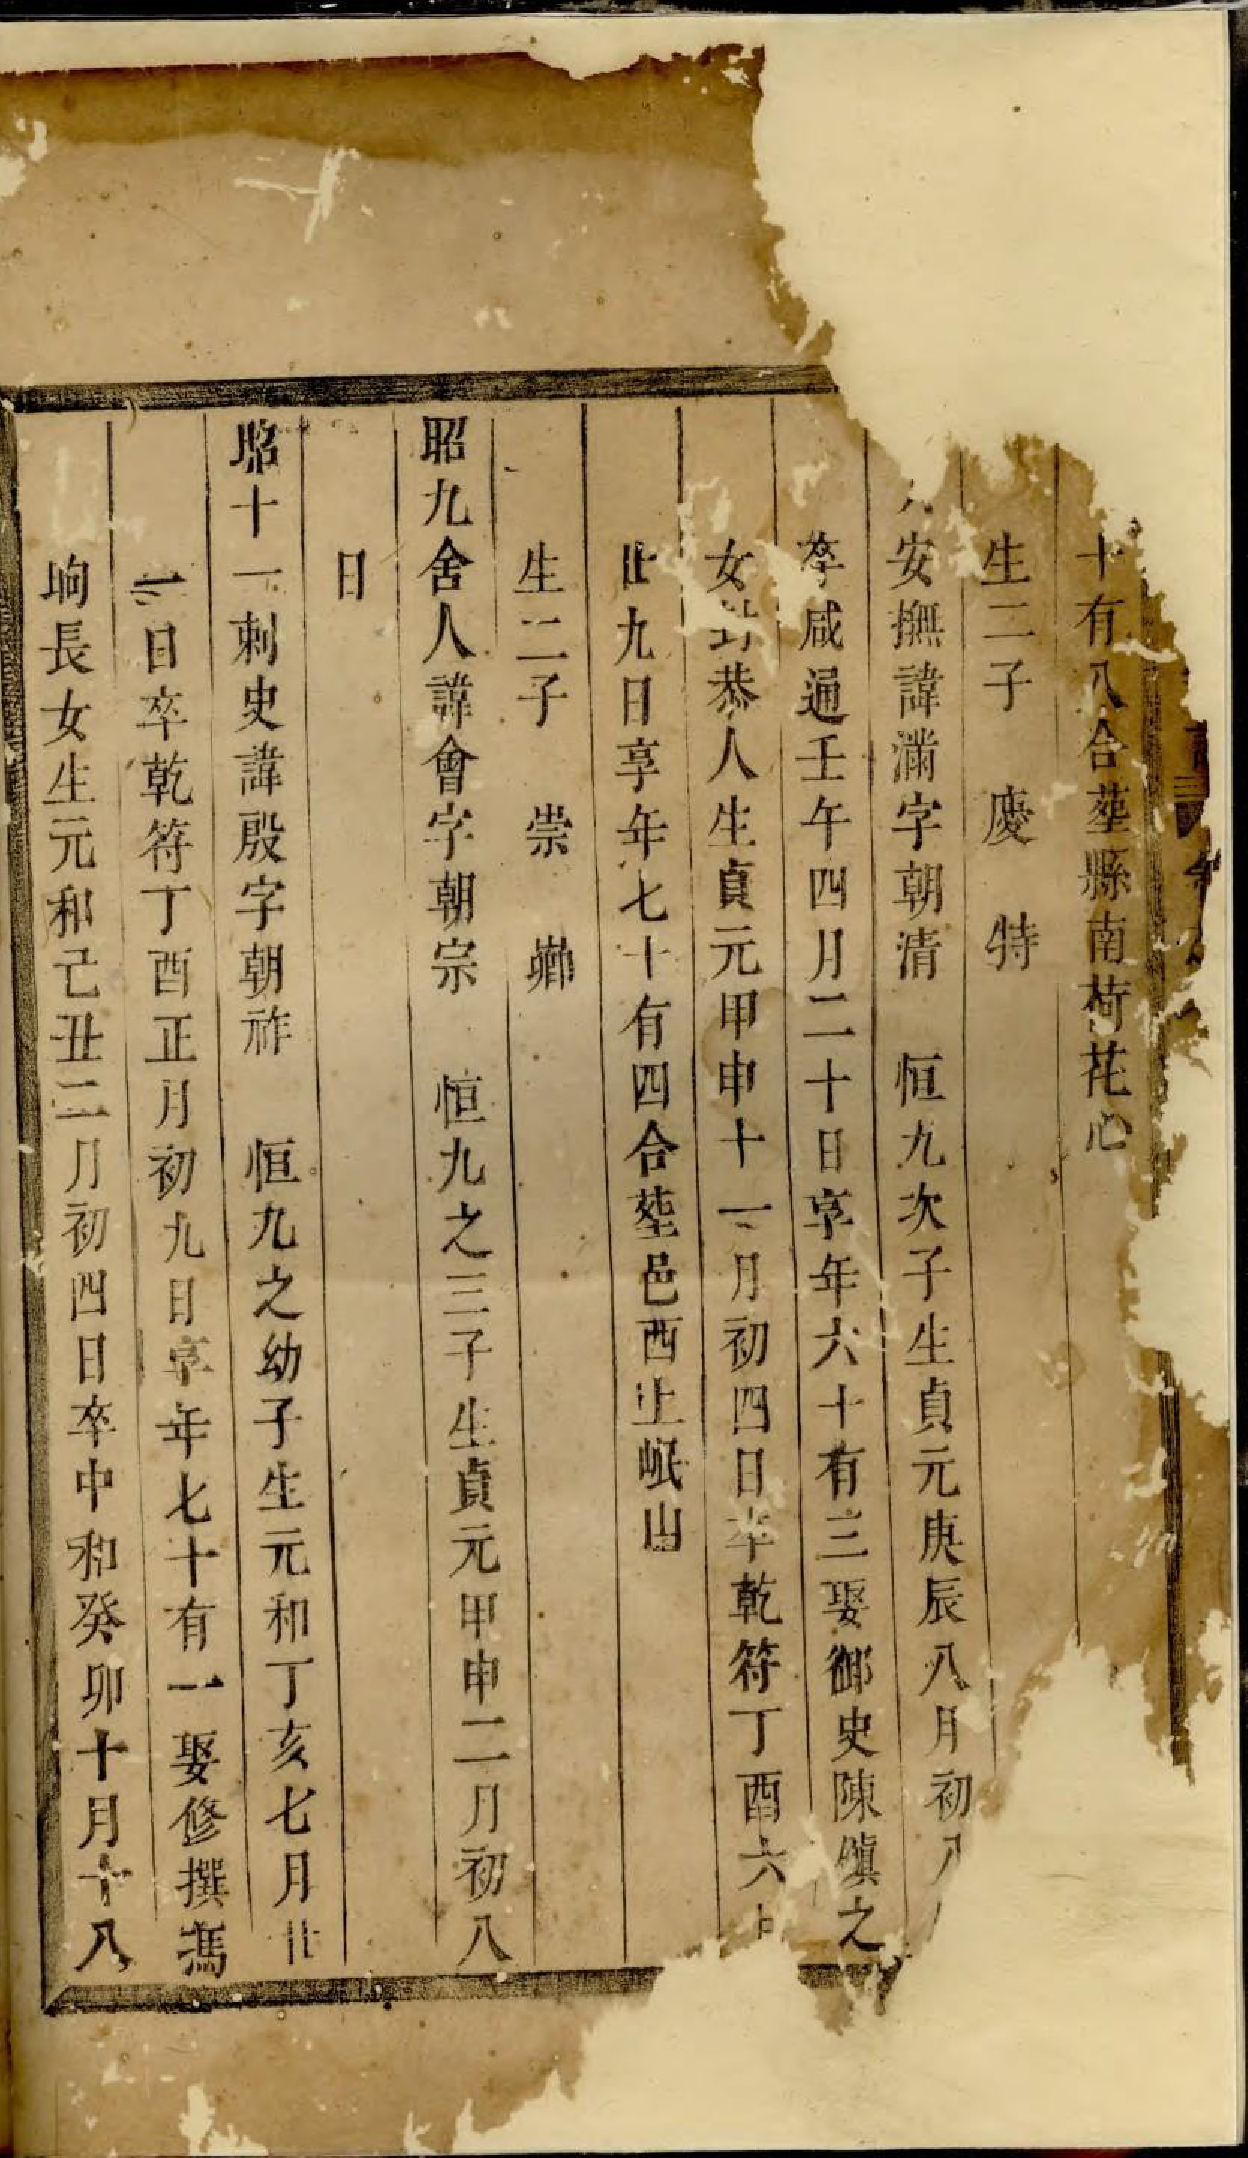 十有八合塟縣南荷花心
生二子　慶　特
安撫諱滿字朝清　恒九次子生貞元庚辰八月初八
卒咸通壬午四月二十日享年六十有三娶御史陳慎之
女封恭人生貞元甲申十一月初四日卒乾符丁酉六月
廿九日享年七十有四合塟邑西上岷山
生二子　崇　卿
昭九舍人諱會字朝宗　恒九之三子生貞元甲申二月初八
日
昭十一刺史諱殷字朝祚　恒九之幼子生元和丁亥七月廿
二日卒乾符丁酉正月初九日享年七十有一娶修撰馮
垧長女生元和己丑二月初四日卒中和癸卯十月十八